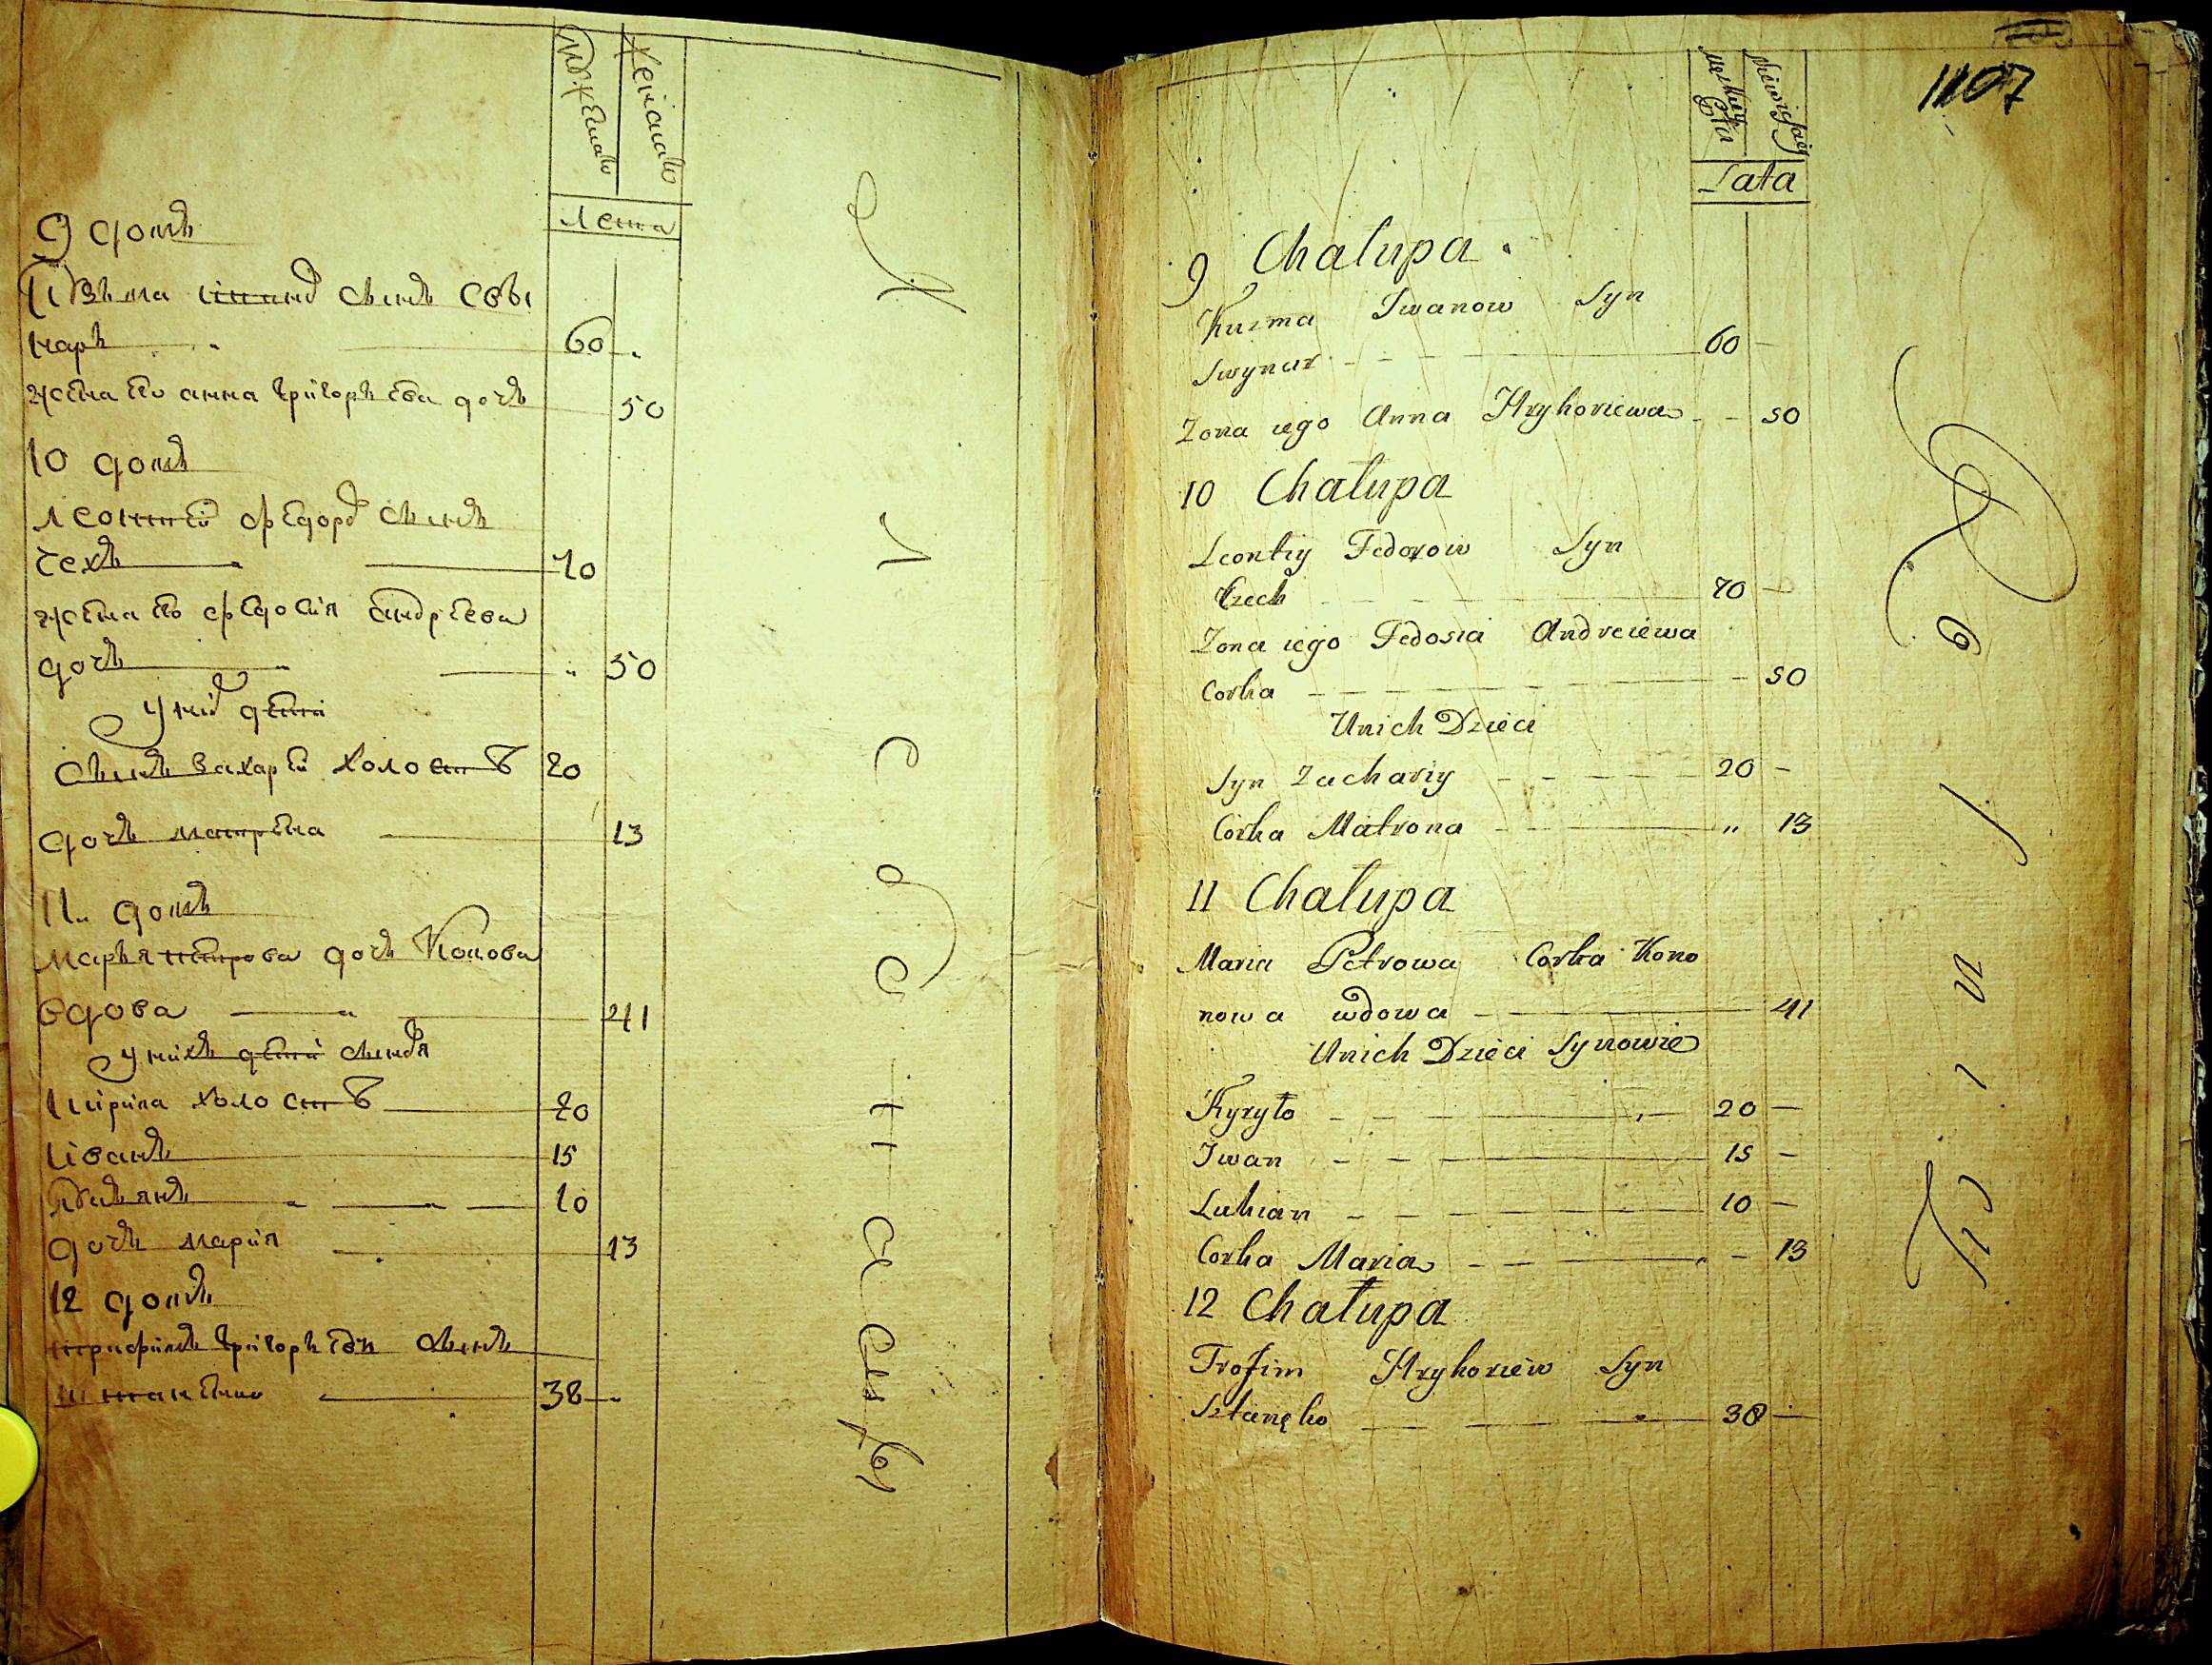 мужеска
женска
лета
9 домъ
Кузьма Иванов сынъ Сви
наръ 60
жена ево анна Григорьева дочь 50
10 домъ
леонтей федоров сынъ
чехъ 70
жена ево федосия андреева
дочь 50
У них дети
сынъ захарей холост 20
дочь матрена 13
11 домъ
марья петрова дочь
вдова 41
У нихъ дети сыновя
Кирила холост 20
Иванъ 15
лукъянъ 10
дочь мария 13
12 домъ
трифимъ Григорьев сынъ
штаненко 38
1107
Lata
9 Chałupa
Kuzma Iwanow Syn
Swynar 60
Zona iego Anna Hryhoriewa 50
10 Chałupa
Leontiy Fedorow Syn
Czech 70
Zona iego Fedosia Andreiewa
Corka 50
Unich Dzieci
Syn Zachariy 20
Corka Matrona 13
11 Chałupa
Maria Petrowa Corka Kono
nowa wdowa 41
Unich Dzieci Synowie
Kyryło 20
Iwan 15
Lukian 10
Corka Maria 13
12 Chałupa
Trofim Hryhoriew Syn
Sztanęko 38